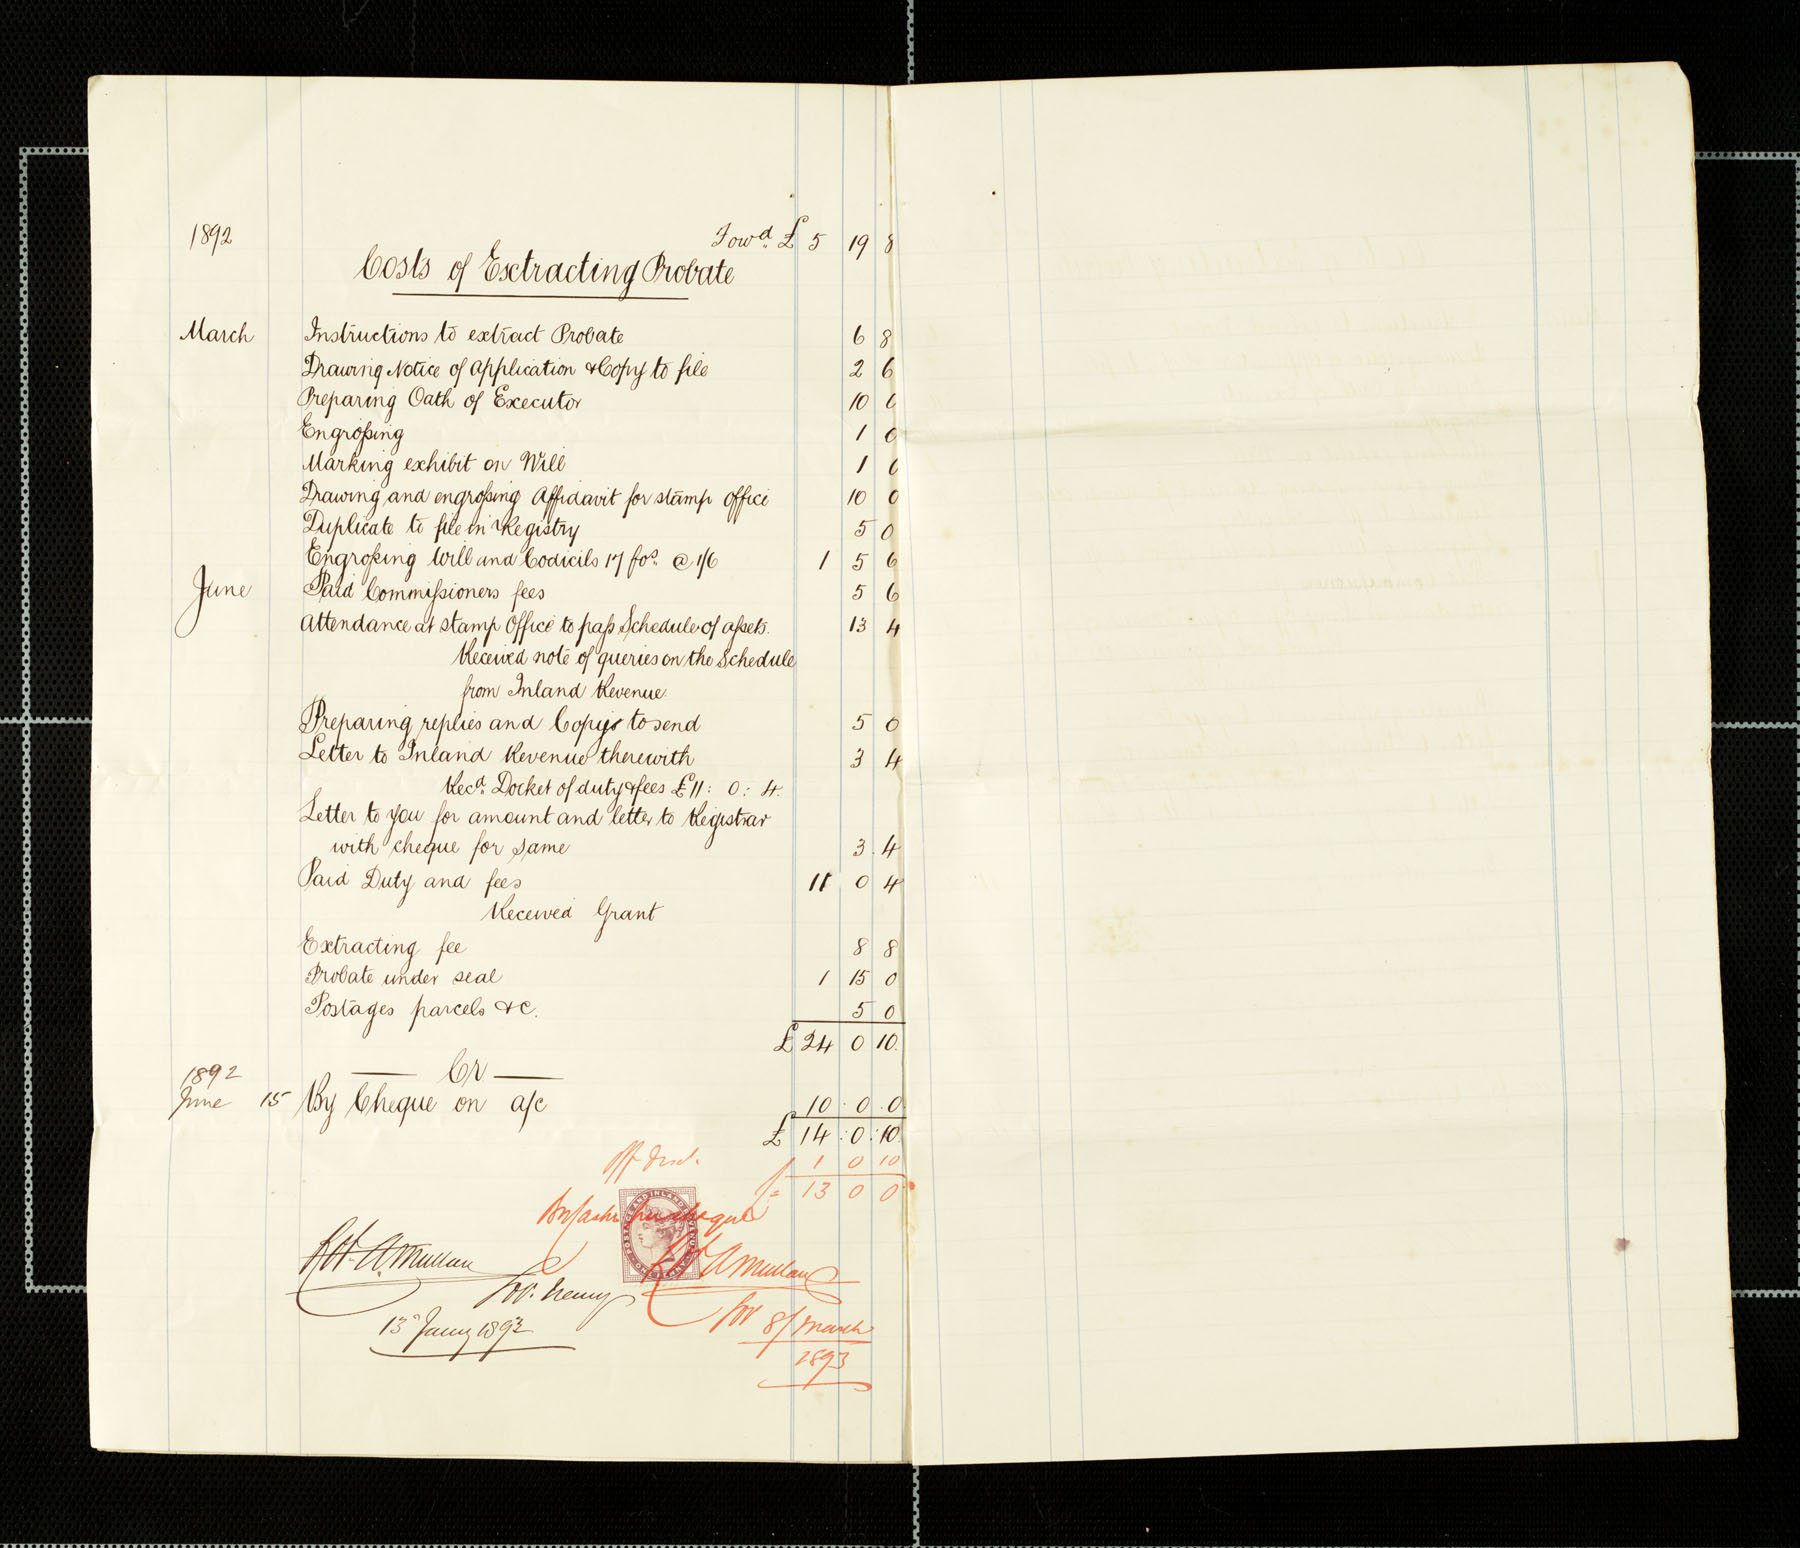 1892 Fowd. £ 5 19 8
Costs of Extracting Probate
March Instructions to extract Probate 6 8
Drawing Notice of Application & Copy to file 2 6
Preparing Oath of Executor 10 0
Engrossing 1 0
Marking exhibit on Will 1 0
Drawing and engrossing Affidavit for stamp office 10 0
Duplicate to file in Registry 5 0
Engrossing Will and Codicils 17 fos. @ 1/6 1 5 6
June Paid Commissioners fees 5 6
Attendance at Stamp Office to pass Schedule of assets. 13 4
Received note of queries on the Schedule
from Inland Revenue
Preparing replies and Copy to send 5 0
Letter to Inland Revenue therewith 3 4
Recd. Docket of duty & fees £11: 0: 4.
Letter to you for amount and letter to Registrar
with cheque for same 3. 4
Paid Duty and fees 11 0 4
Received Grant
Extracting fee 8 8
Probate under seal 1 15 0
Postages parcels &c. 5 0
£ 24 0 10.
Cr
1892
June 15 By Cheque on a/c 10. 0. 0
£ 14: 0: 10.
Off 1 0 10
£= 13 0 0
By cheque
POSTAGE AND INLAND REVENUE
ONE PENNY
R H A Mullan
R H A Mullan
13 Jany 1893
for 8/ March
1893